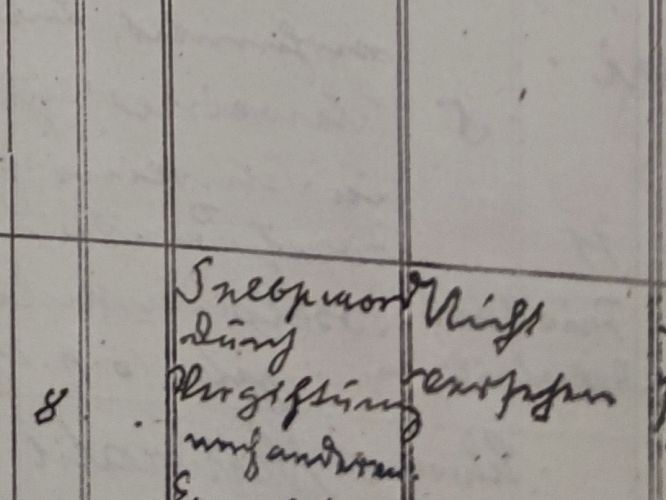 8
Selbstmord
durch
Vergiftung
nach anderen
Nicht
versehen